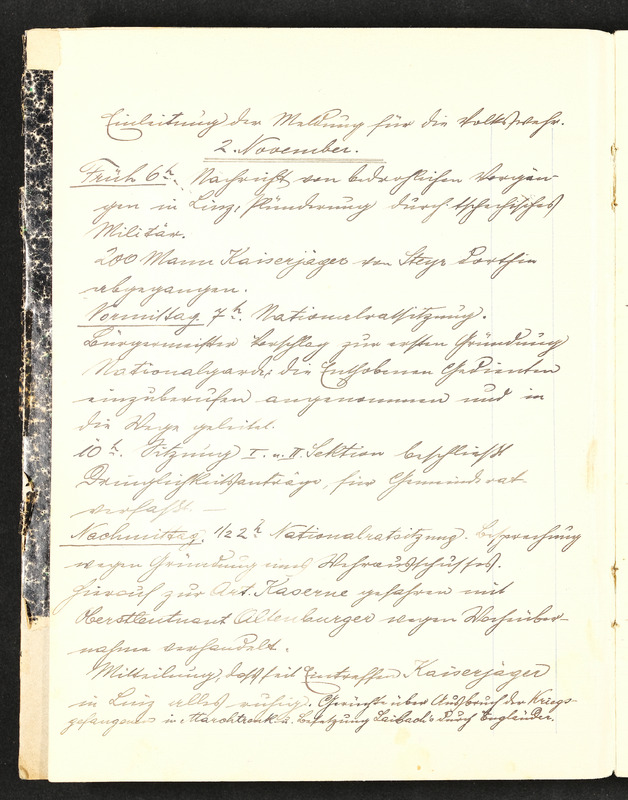 Einleitung der Meldung für die Volkswehr.
2. November.
Früh 6h. Nachricht von bedrohlichen Vorgän-
gen in Linz, Plünderung durch tschechisches
Militär.
200 Mann Kaiserjäger von Steyr dorthin
abgegangen.
Vormittag 7h. Nationalratsitzung.
Bürgermeister Vorschlag zur ersten Gründung
Nationalgarde: die Enthobenen Gedienten
einzuberufen angenommen und in
die Wege geleitet.
10h. Sitzung I. u. II. Sektion beschließt
Dringlichkeitsanträge, für Gemeinderat
verfaßt. —
Nachmittag 1/2 2h Nationalratsitzung. Besprechung
wegen Gründung eines Wehrausschusses.
Hierauf zur Art. Kaserne gefahren mit
Oberstleutnant Altenburger wegen Wachüber-
nahme verhandelt.
Mitteilung, daß seit Eintreffen Kaiserjäger
in Linz alles ruhig. Gerüchte über Ausbruch der Kriegs-
gefangenen in Marchtrenk u. Besetzung Laibach's durch Engländer.